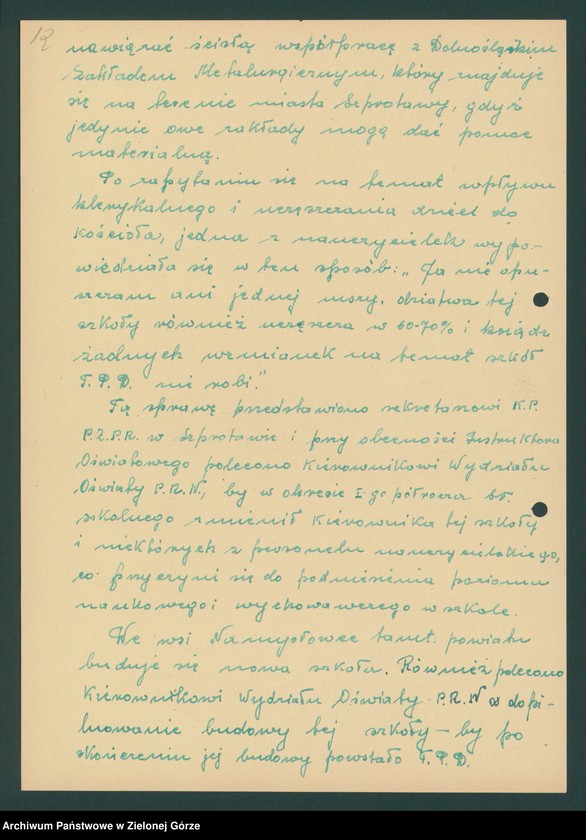 12
nawiązać ścisłą współpracę z Dolnośląskim
Zakładem Metalurgicznym, który znajduje
się na terenie miasta Szprotawy, gdyż
jedynie owe zakłady mogą dać pomoc
materialną.
Po zapytaniu się na temat wpływu
klerykalnego i uczęszczania dzieci do
kościoła, jedna z nauczycielek wypo-
wiedziała się w ten sposób: „Ja nie opu-
szczam ani jednej mszy, dziatwa tej
szkoły również uczęszcza w 60-70% i ksiądz
żadnych wzmianek na temat szkół
T.P.D. nie robi."
Tą sprawę przedstawiono sekretarzowi K.P.
P.Z.P.R. w Szprotawie i przy obecności Instruktora
Oświatowego polecono Kierownikowi Wydziału
Oświaty P.R.N., by w okresie I-go półrocza br.
szkolnego zmienił Kierownika tej szkoły
i niektórych z personelu nauczycielskiego,
co przyczyni się do podniesienia poziomu
naukowego i wychowawczego w szkole.
We wsi Namysłowce tamt. powiatu
buduje się nowa szkoła. Również polecono
Kierownikowi Wydziału Oświaty P.R.N w dopi-
lnowanie budowy tej szkoły – by po
skończeniu jej budowy powstało T.P.D.
Archiwum Państwowe w Zielonej Górze